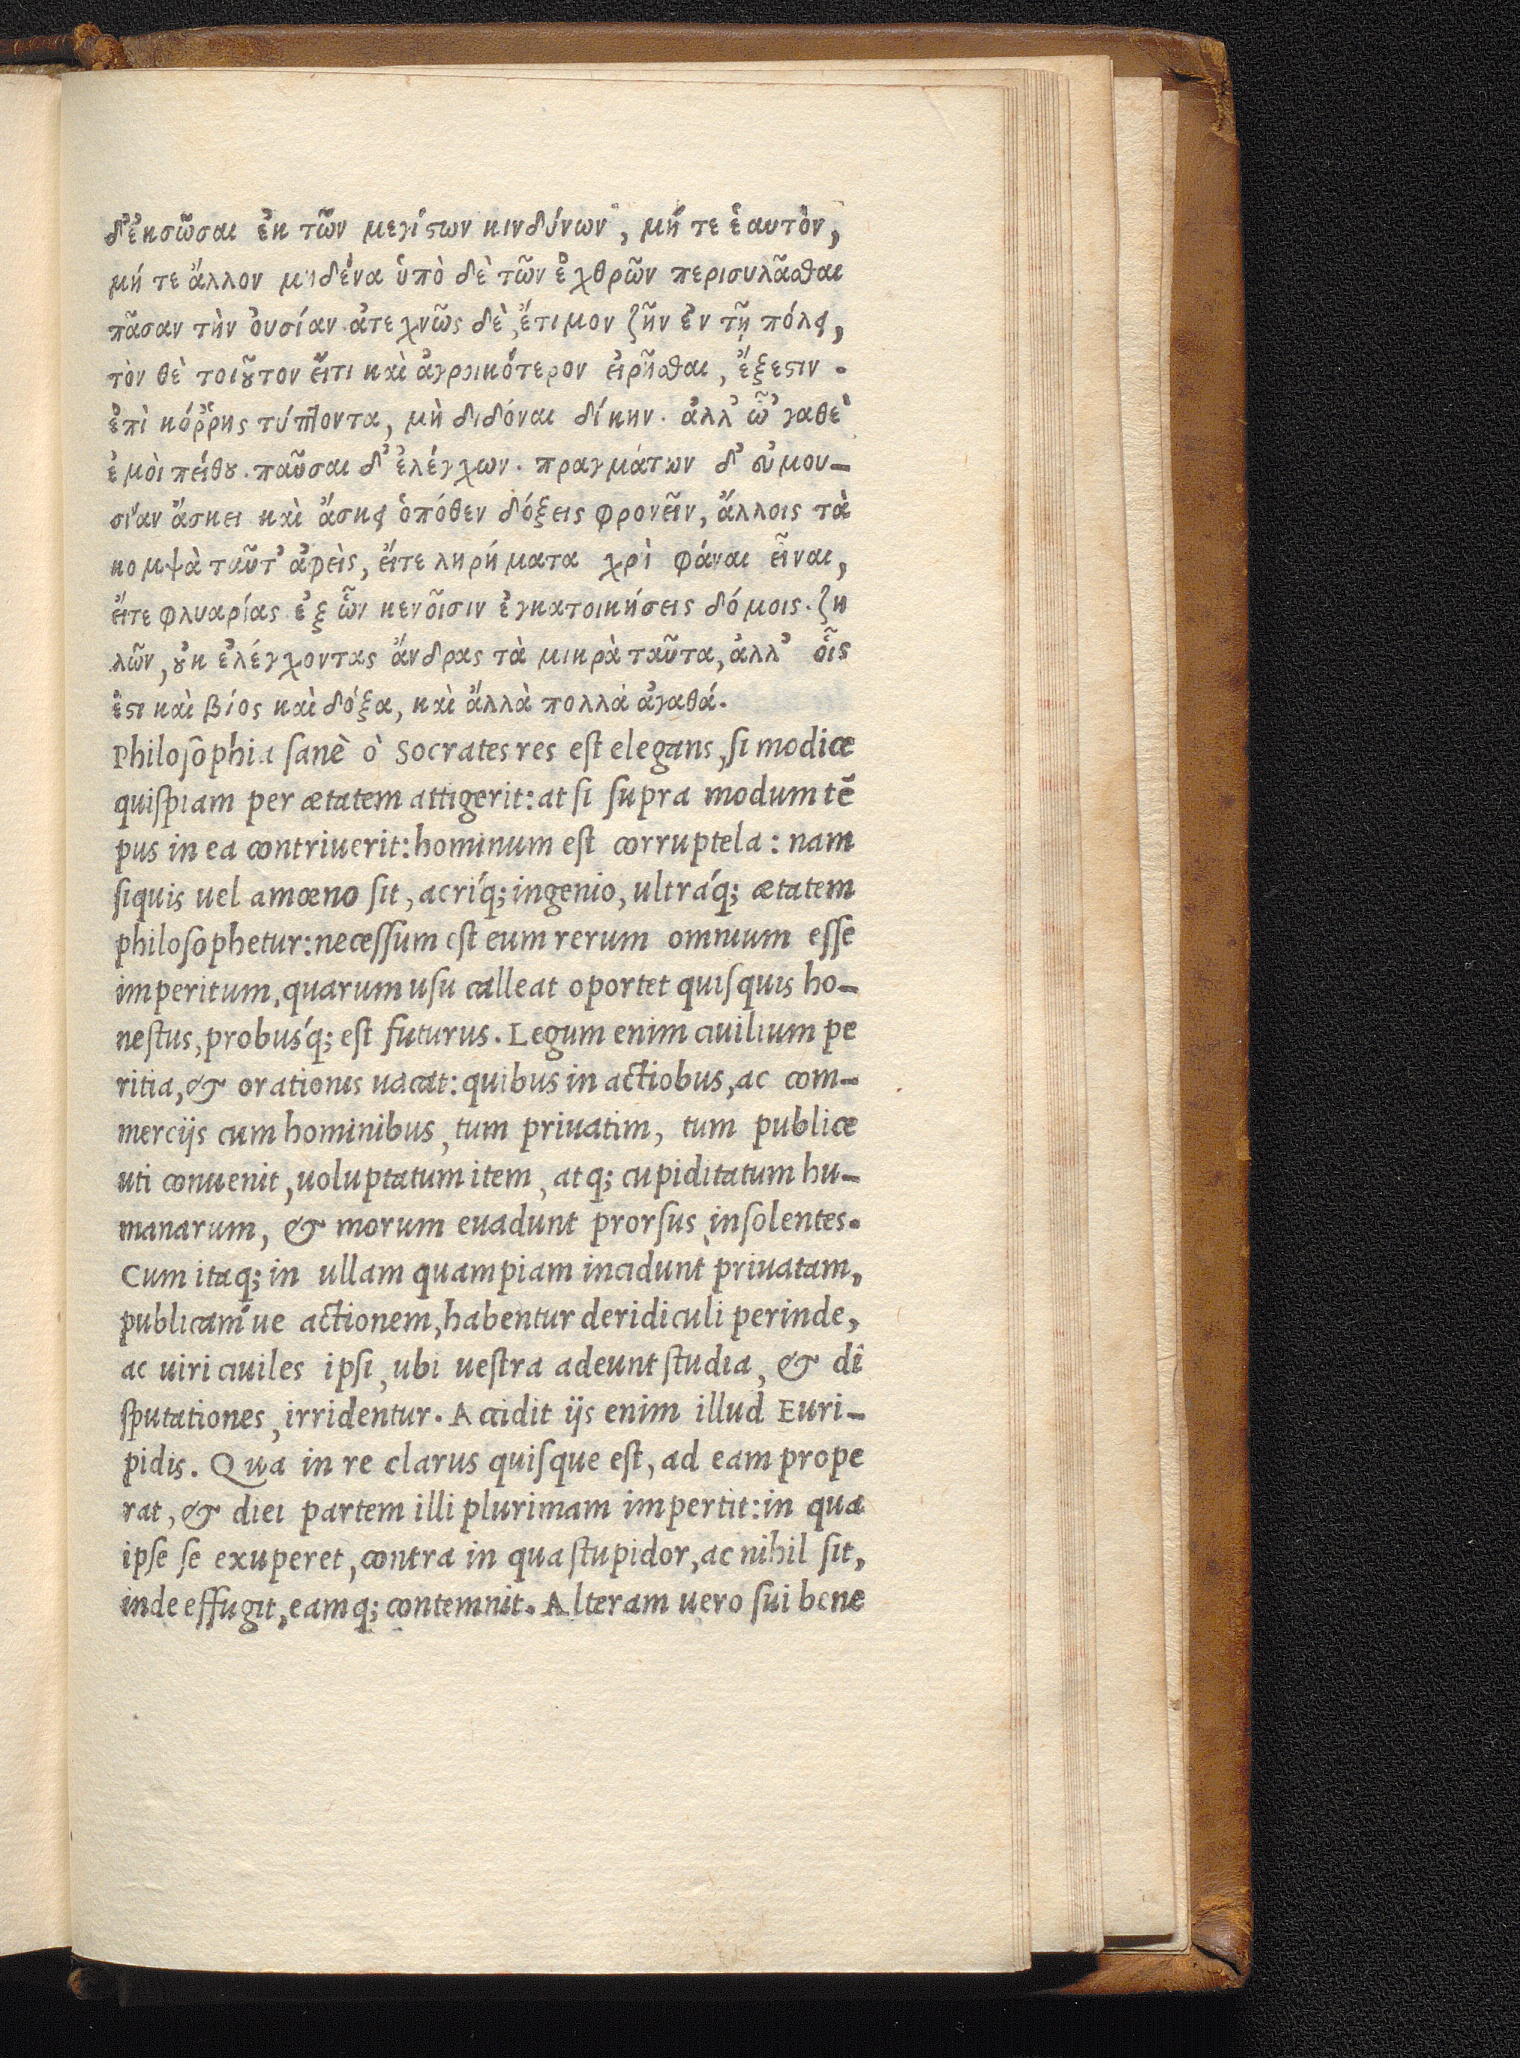 δ' ἐκσῶσαι ἐκ τῶν μεγίστων κινδύνων, μή τε ἑαυτὸν,
μή τε ἄλλον μηδένα ὑπὸ δὲ τῶν ἐχθρῶν περισυλᾶσθαι
πᾶσαν τὴν ὀυσίαν ἀτεχνῶς δὲ, ἔτιμον ζῆν ἐν τῇ πόλει,
τὸν δὲ τοιοῦτον εἴτι καὶ ἀγροικότερον εἰρῆσθαι, ἔξεστιν.
ἐπὶ κόῤῥης τύπτοντα, μὴ διδόναι δίκην. ἀλλ' ὦ 'γαθὲ
ἐμὸι πείθου. παῦσαι δ' ἐλέγχων. πραγμάτων δ' ἐυμου-
σίαν ἄσκει καὶ ἄσκει ὁπόθεν δόξεις φρονεῖν, ἄλλοις τὰ
κομψὰ ταῦτ' ἀφεὶς, εἴτε ληρήματα χρὶ φάναι εἶναι,
εἴτε φλυαρίας ἐξ ὧν κενοῖσιν ἐγκατοικήσεις δόμοις. ζη
λῶν, οὐκ ἐλέγχοντας ἄνδρας τὰ μικρὰ ταῦτα, ἀλλ' οἷς
ἔστι καὶ βίος καὶ δόξα, καὶ ἄλλὰ πολλὰ ἀγαθά.
Philosophia sanè ò Socrates res est elegans, si modicæ
quispiam per ætatem attigerit: at si supra modum tē
pus in ea contriuerit: hominum est corruptela: nam
siquis uel amœno sit, acríq; ingenio, ultráq; ætatem
philosophetur: necessum est eum rerum omnium esse
imperitum, quarum usu calleat oportet quisquis ho-
nestus, probusq́; est futurus. Legum enim ciuilium pe
ritia, & orationis uacat: quibus in actiobus, ac com-
mercijs cum hominibus, tum priuatim, tum publice
uti conuenit, uoluptatum item, atq; cupiditatum hu-
manarum, & morum euadunt prorsus insolentes.
Cum itaq; in ullam quampiam incidunt priuatam,
publicam'ue actionem, habentur deridiculi perinde,
ac uiri ciuiles ipsi, ubi uestra adeunt studia, & di
sputationes, irridentur. Accidit ijs enim illud Euri-
pidis. Qua in re clarus quisque est, ad eam prope
rat, & diei partem illi plurimam impertit: in qua
ipse se exuperet, contra in qua stupidor, ac nihil sit,
inde effugit, eamq; contemnit. Alteram uero sui bene